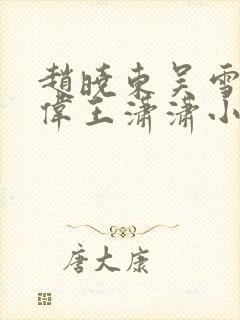 趙曉東吳雪
偉王瀟瀟小
唐大康